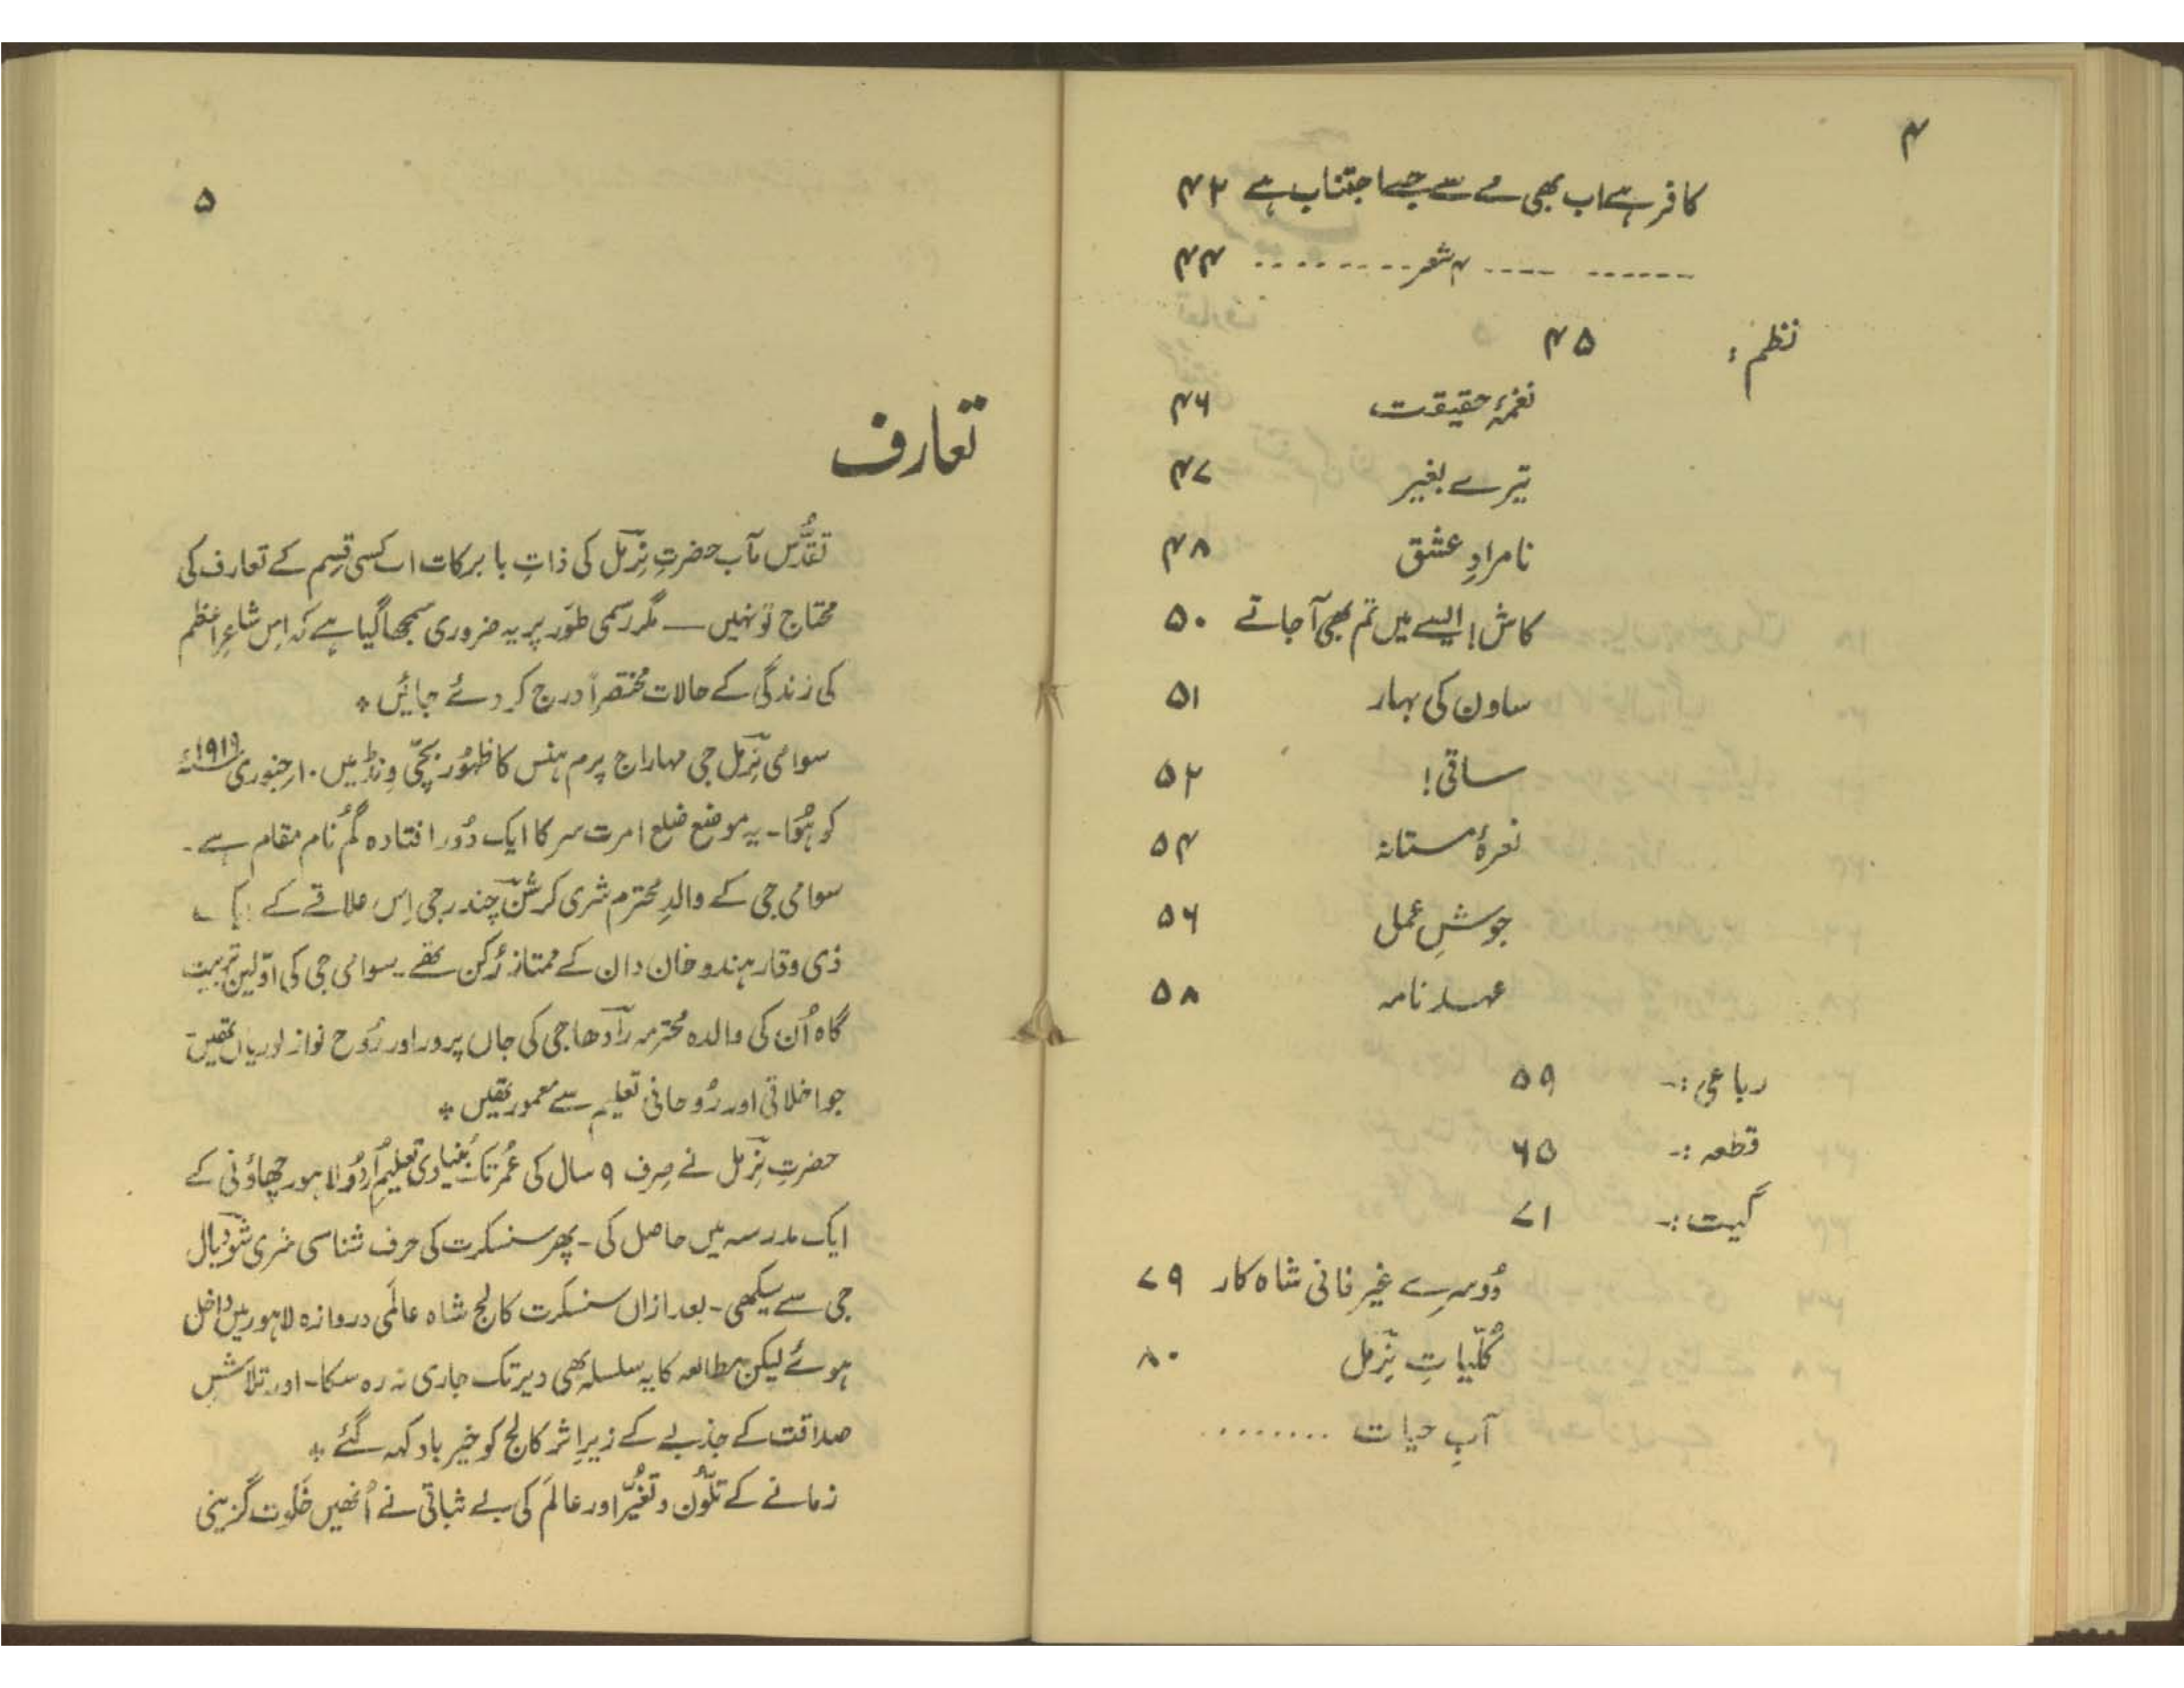 ۴
کافر ہے اب بھی مے سے جسے اجتناب ہے ۴۲
------ ---- ۴ شعر --------- ۴۴
نظم : ۴۵
نغمۂ حقیقت ۴۶
تیرے بغیر ۴۷
نامرادِ عشق ۴۸
کاش! ایسے میں تم بھی آجاتے ۵۰
ساون کی بہار ۵۱
ساقی! ۵۲
نعرۂ مستانہ ۵۴
جوشِ عمل ۵۶
عہد نامہ ۵۸
رباعی :- ۵۹
قطعہ :- ۶۵
گیت :- ۷۱
دُوسرے غیر فانی شاہ کار ۷۹
کُلّیاتِ نِرمل ۸۰
آبِ حیات ........
۵
تعارف
تقدُّس مآب حضرتِ نِرمل کی ذاتِ با برکات اب کسی قِسم کے تعارف کی
محتاج تو نہیں — مگر رسمی طَور پر یہ ضروری سمجھا گیا ہے کہ اِس شاعرِ اعظم
کی زندگی کے حالات مختصراً درج کر دئے جائیں ٭
سوامی نِرمل جی مہاراج پرم ہنس کا ظہُور بچّی وِنڈ میں ۱۰ر جنوری ۱۹۱۹ء
کو ہُوا - یہ موضع ضلع امرت سر کا ایک دُور افتادہ گُم نام مقام ہے -
سوامی جی کے والدِ محترم شری کرشن چندر جی اِس علاقے کے
ذی وقار ہندو خان دان کے ممتاز رُکن تھے - سوامی جی کی اوّلین تربیت
گاہ اُن کی والدہ محترمہ رادھا جی کی جاں پرور اور رُوح نواز لوریاں تھیں
جو اخلاقی اور رُوحانی تعلیم سے معمور تھیں ٭
حضرتِ نِرمل نے صِرف ۹ سال کی عُمر تک بُنیادی تعلیمِ اُردُو لاہور چھاؤنی کے
ایک مدرسہ میں حاصل کی - پھر سنسکرت کی حرف شناسی شری شودیال
جی سے سیکھی - بعد ازاں سنسکرت کالج شاہ عالَمی دروازہ لاہور میں داخل
ہوئے لیکن مطالعہ کا یہ سلسلہ بھی دیر تک جاری نہ رہ سکا - اور تلاشِ
صداقت کے جذبے کے زیرِ اثر کالج کو خیر باد کہہ گئے ٭
زمانے کے تلوُّن و تغیُّر اور عالَم کی بے ثباتی نے اُنھیں خَلوت گزینی